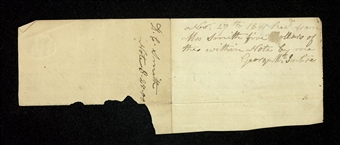 D. L. Smith
Note
Nov. 27th 18 Recd from
Mrs Smith five Dollars of
the within Note by me
George